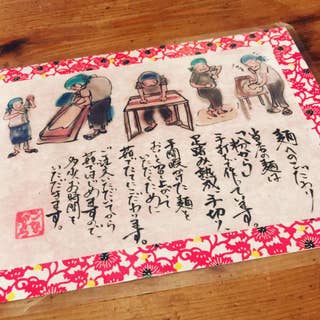 麺へのこだわり
当店の麺は
「粉から」
手打ちで作っています。
足踏み熟成、手切り、
手間暇かけた麺を
おいしく召し上がって
いただくために
茹でたてにこだわります。
ご注文いただいてから
茹ではじめますので
多少お時間を
いただきます。